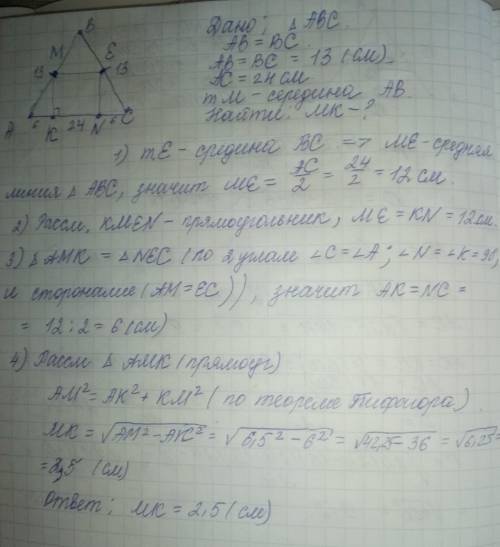 B
M
E
13
13
A
6
K
24
N
6
C
Дано: △ ABC.
AB = BC
AB = BC = 13 (см).
AC = 24 см
т M - середина AB.
Найти: MK - ?
1) т E - средина BC => ME - средняя
линия △ ABC, значит ME = AC/2 = 24/2 = 12 см.
2) Рассм, KMEN - прямоугольник, ME = KN = 12 см.
3) △ AMK = △ NEC (по 2 углам ∠C = ∠A; ∠N = ∠K = 90,
и сторонами (AM = EC)), значит AK = NC =
= 12 : 2 = 6 (см)
4) Рассм △ AMK (прямоуг)
AM² = AK² + KM² (по теореме Пифагора)
MK = √AM² - AK² = √6,5² - 6² = √42,25 - 36 = √6,25 =
= 2,5 (см)
Ответ: MK = 2,5 (см)